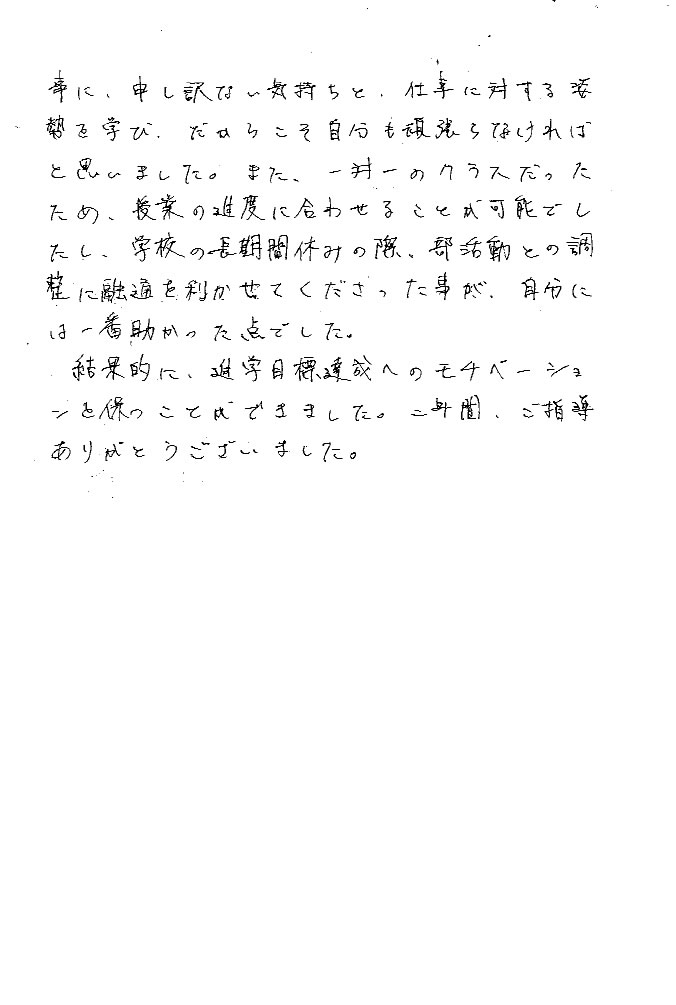 事に、申し訳ない気持ちと、仕事に対する姿
勢を学び、だからこそ自分も頑張らなければ
と思いました。また、一対一のクラスだった
ため、授業の進度に合わせることが可能でし
たし、学校の長期間休みの際、部活動との調
整に融通を利かせてくださった事が、自分に
は一番助かった点でした。
結果的に、進学目標達成へのモチベーショ
ンを保つことができました。二年間、ご指導
ありがとうございました。